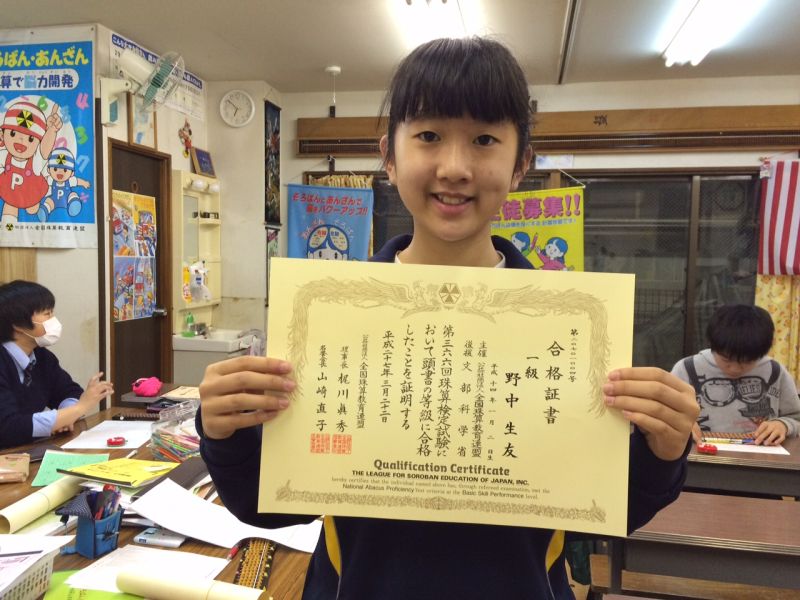 ろばん・あんざん
算で 力開発
P
P
社団法人 全国珠算教育連盟
そろばんとあんざんで
脳をパワーアップ!!
生徒募集!!
合格証書
一級
野中生友
平成十四年一月二日生
主催 公益社団法人全国珠算教育連盟
後援 文部科学省
第三六六回珠算検定試験に
おいて頭書の等級に合格
したことを証明する
平成二十七年三月二十二日
公益社団法人全国珠算教育連盟
理事長 梶川真秀
名誉会長 山崎直子
Qualification Certificate
THE LEAGUE FOR SOROBAN EDUCATION OF JAPAN, INC.
hereby certifies that the individual named above has, through refereed examination, met the
National Abacus Proficiency test criteria at the Basic Skill Performance level.